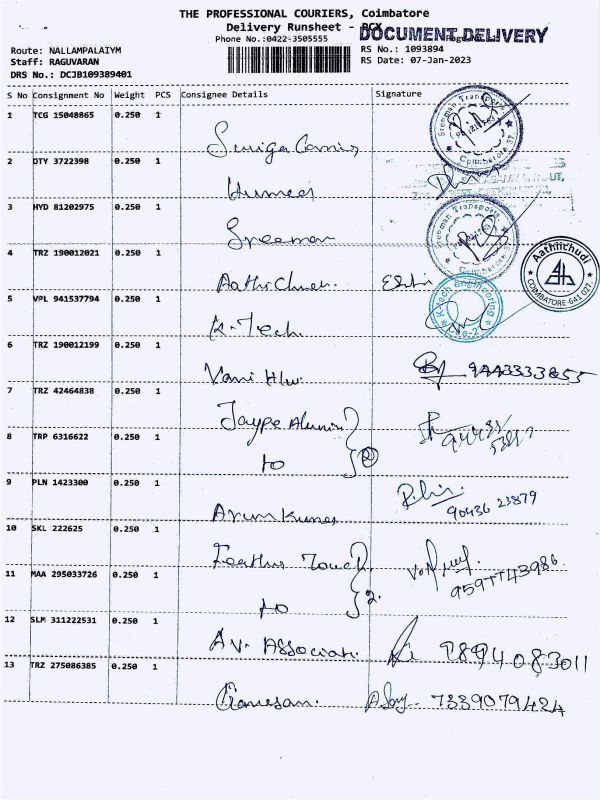 THE PROFESSIONAL COURIERS, Coimbatore
Delivery Runsheet - PCX
DOCUMENT DELIVERY
Phone No.:0422-3505555
Route: NALLAMPALAIYM
RS No.: 1093894
Staff: RAGUVARAN
RS Date: 07-Jan-2023
DRS No.: DCJB109389401
S No Consignment No Weight PCS Consignee Details Signature
1 TCG 15048865 0.250 1
Sreeman Transports
Coimbatore 37
2 DTY 3722398 0.250 1
3 HYD 81202975 0.250 1
Sreeman
Sreeman Transports
Coimbatore
4 TRZ 190012021 0.250 1
Aathiichudi
COIMBATORE-641 027
5 VPL 941537794 0.250 1
K-Tech
K-tech engineering
6 TRZ 190012199 0.250 1
Vani H/w.
9443333855
7 TRZ 42464838 0.250 1
8 TRP 6316622 0.250 1
to
2
9 PLN 1423300 0.250 1
Arun Kumar
90436 23879
10 SKL 222625 0.250 1
Touch
11 MAA 295033726 0.250 1
to
2.
12 SLM 311222531 0.250 1
AV. Associat
9894083011
13 TRZ 275086385 0.250 1
Ganesan.
7339079424